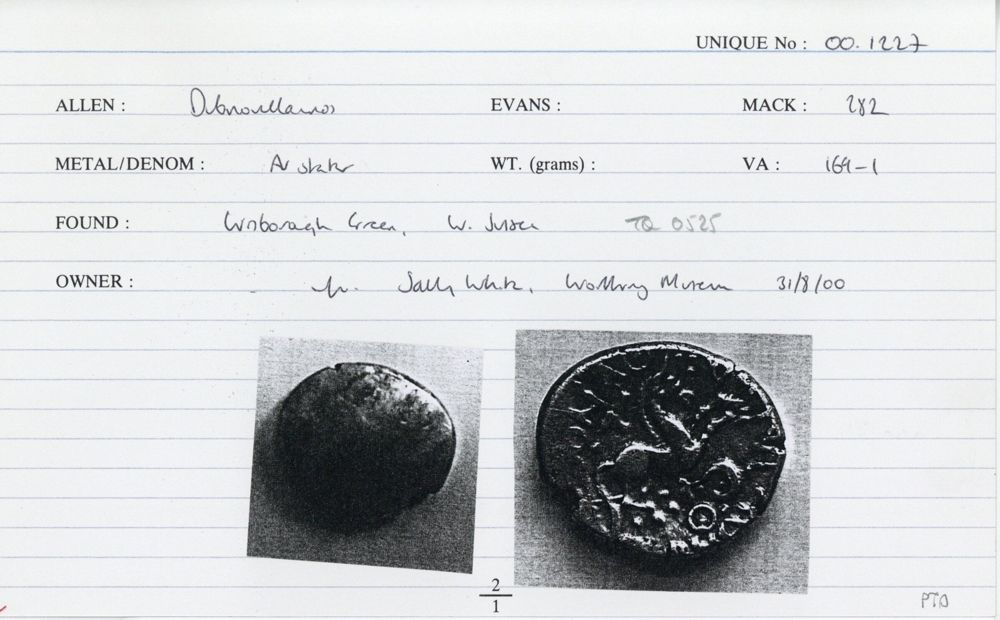 UNIQUE No : 00.1227
ALLEN : Dubnovellaunos EVANS : MACK : 282
METAL/DENOM : AV stater WT. (grams) : VA : 169-1
FOUND : Wisborough Green, W. Sussex TQ 0525
OWNER : Sally White, Worthing Museum 31/8/00
2
1
PTO